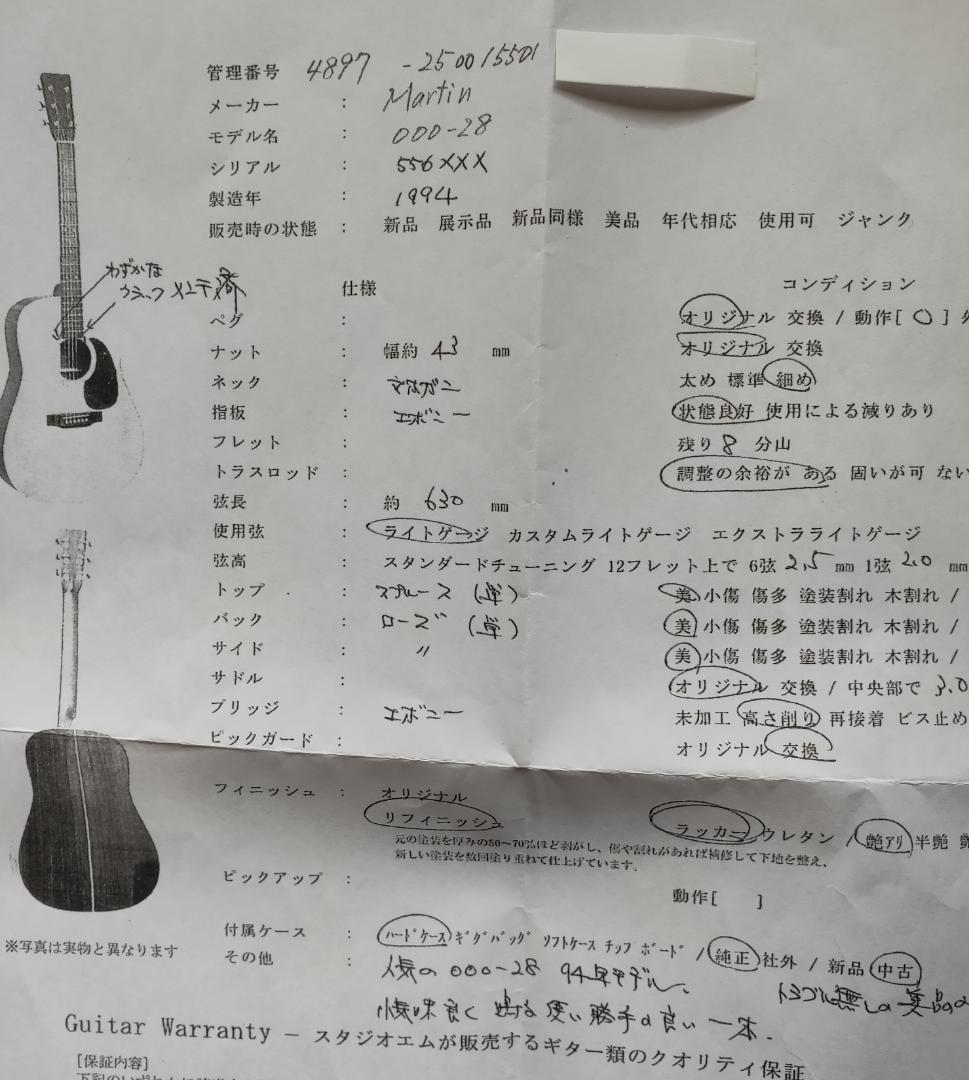 管理番号 4897 -250015501
メーカー : Martin
モデル名 : 000-28
シリアル : 556XXX
製造年 : 1994
販売時の状態 : 新品 展示品 新品同様 美品 年代相応 使用可 ジャンク
わずかな
クラック メンテ済
仕様 コンディション
ペグ : オリジナル 交換 / 動作[ 〇 ]
ナット : 幅約 43 mm オリジナル 交換
ネック : マホガニー 太め 標準 細め
指板 : エボニー 状態良好 使用による減りあり
フレット : 残り 8 分山
トラスロッド : 調整の余裕が ある 固いが可 ない
弦長 : 約 630 mm
使用弦 : ライトゲージ カスタムライトゲージ エクストラライトゲージ
弦高 : スタンダードチューニング 12フレット上で 6弦 2.5 mm 1弦 2.0 mm
トップ : スプルース (単) 美 小傷 傷多 塗装割れ 木割れ /
バック : ローズ (単) 美 小傷 傷多 塗装割れ 木割れ /
サイド : 〃 美 小傷 傷多 塗装割れ 木割れ /
サドル : オリジナル 交換 / 中央部で 3.0
ブリッジ : エボニー 未加工 高さ削り 再接着 ビス止め
ピックガード : オリジナル 交換
フィニッシュ : オリジナル
リフィニッシュ ラッカー ウレタン / 艶アリ 半艶 艶
元の塗装を厚みの50～70%ほど剥がし、傷や割れがあれば補修して下地を整え、
新しい塗装を数回塗り重ねて仕上げています。
ピックアップ : 動作[ ]
付属ケース : ハードケース ギグバッグ ソフトケース チップボード / 純正 社外 / 新品 中古
※写真は実物と異なります
その他 : 人気の 000-28 94年モデル、トラブル無しの美品の
慣味良く 出な 使い勝手の良い 一本.
Guitar Warranty － スタジオエムが販売するギター類のクオリティ保証
[保証内容]